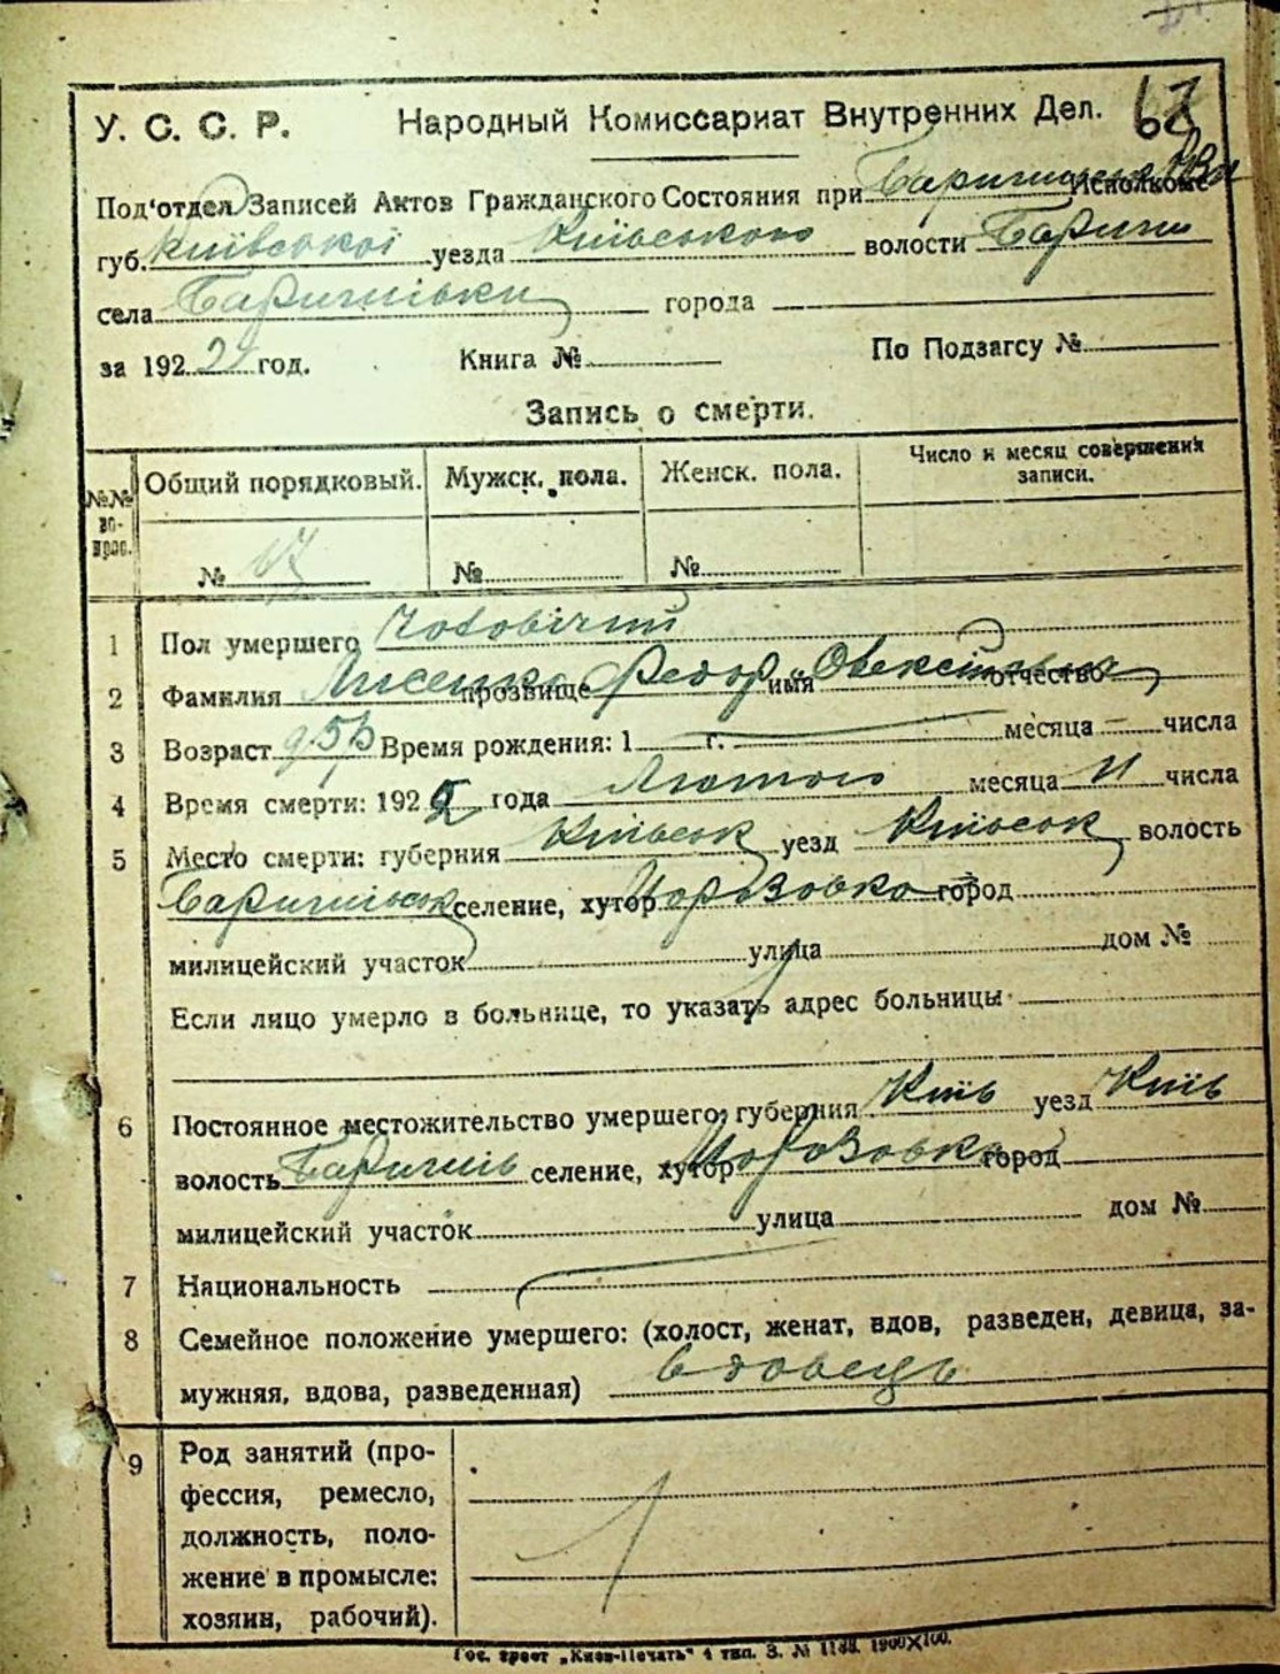 У. С. С. Р. Народный Комиссариат Внутренних Дел.
Под'отдел Записей Актов Гражданского Состояния при Исполкоме
губ. Київської уезда Київського волости Бариш
села Баришівки города
за 192 год. Книга № По Подзагсу №
Запись о смерти.
№№ вопрос. Общий порядковый. Мужск. пола. Женск. пола. Число и месяц совершения записи.
№ 17 № №
1 Пол умершего Чоловічий
2 Фамилия Лисенко прозвище Федор имя Олексійович отчество
3 Возраст 95 р Время рождения: 1 г. месяца числа
4 Время смерти: 192 2 года Лютого месяца 11 числа
5 Место смерти: губерния Київськ уезд Київськ волость
Баришівськ селение, хутор Морозовка город
милицейский участок улица дом №
Если лицо умерло в больнице, то указать адрес больницы
6 Постоянное местожительство умершего; губерния Київ уезд Київ
волость Баришів селение, хутор Морозовка город
милицейский участок улица дом №
7 Национальность
8 Семейное положение умершего: (холост, женат, вдов, разведен, девица, за-
мужняя, вдова, разведенная) вдовець
9 Род занятий (про-
фессия, ремесло,
должность, поло-
жение в промысле:
хозяин, рабочий).
Гос. трест „Киев-Печать" 4 тип. З. № 1900×100.